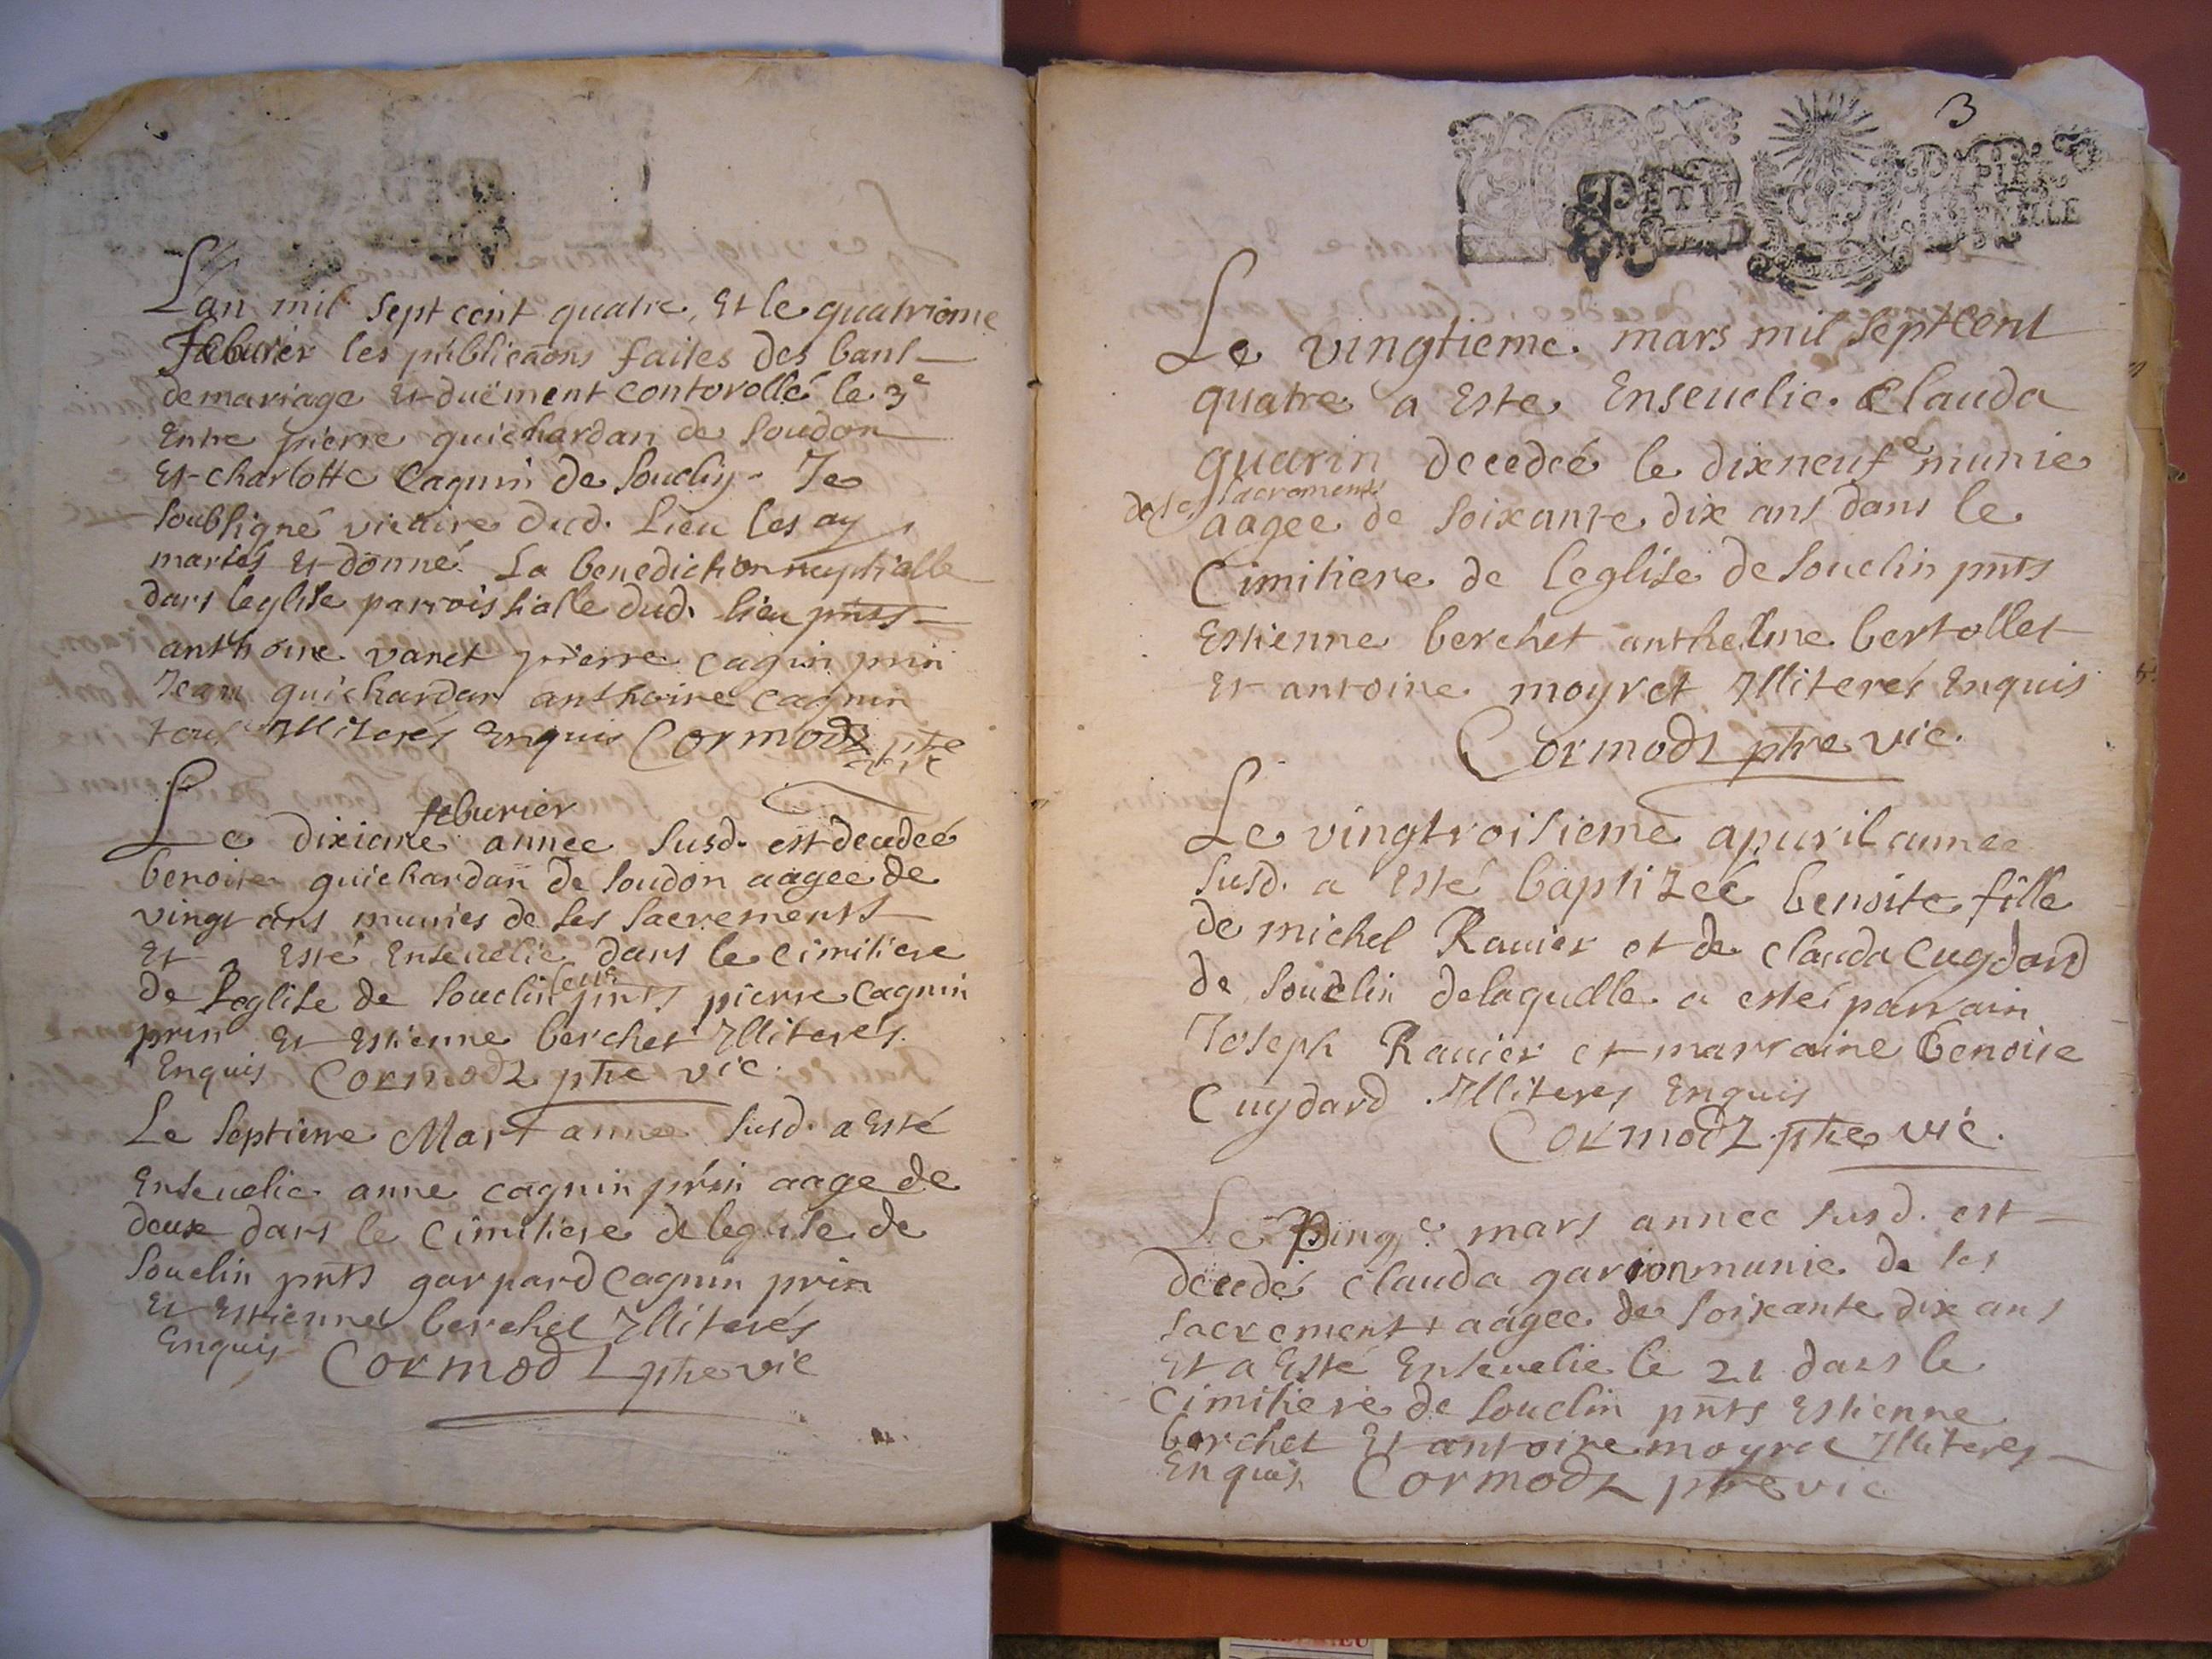 Lan mil sept cent quatre, Et le quatriême
Feburier les publicãons faites des bans
de mariage Et duëment contorollé le 3e
Entre pierre guichardan de soudon
Et charlotte Cagnin de souclin Je
soubsigné vicaire dud. Lieu les ay
mariés Et donné La benediction nuptialle
dans leglise parroissialle dud. lieu pnts
anthoine varret pierre cagnin prin
Jean guichardan anthoine cagnin
tous Illiterés Enquis Cormodz ptre
vic
feburier
Le dixiême annee susd. est decedeé
benoite guichardan de soudon aagee de
vingt ans munies de ses sacrements
Et Esté Enseuelie dans le cimitiere
de Leglise de souclin pnts pierre Cagnin
prin Et Estienne berchet Illiterés
Enquis Cormodz ptre vic.
Le septieme Mars annee susd. a Esté
Enseuelie anne cagnin prin aage de
deux dans le cimitiere de leglise de
souclin pnts garpard Cagnin prin
Et Estienne berchet Illiterés
Enquis Cormodz ptre vic
3
PETIT PAPIER
Le vingtieme mars mil septcent
quatre a Este Enseuelie Clauda
guarin decedeé le dixneufe munie
de ses sacrements
aagee de soixante dix ans dans le
Cimitiere de leglise de souclin pnts
Estienne berchet anthelme bertollet
Et antoine moyret Illiterés Enquis
Cormodz ptre vic.
Le vingtroisieme apuril annee
susd. a Esté baptizeé benoite fille
de michel Rauier et de clauda Cugdard
de souclin delaquelle a esté parrain
Joseph Rauier et marraine benoite
Cuydard Illiteres Enquis
Cormodz ptre vic.
Le mars annee susd. est
decedé clauda garion munie de ses
sacrements aagee de soixante dix ans
Et a Esté Enseuelie le 21 dans le
cimitiere de souclin pnts Estienne
berchet Et antoine moyret Illiteres
Enquis Cormodz ptre vic